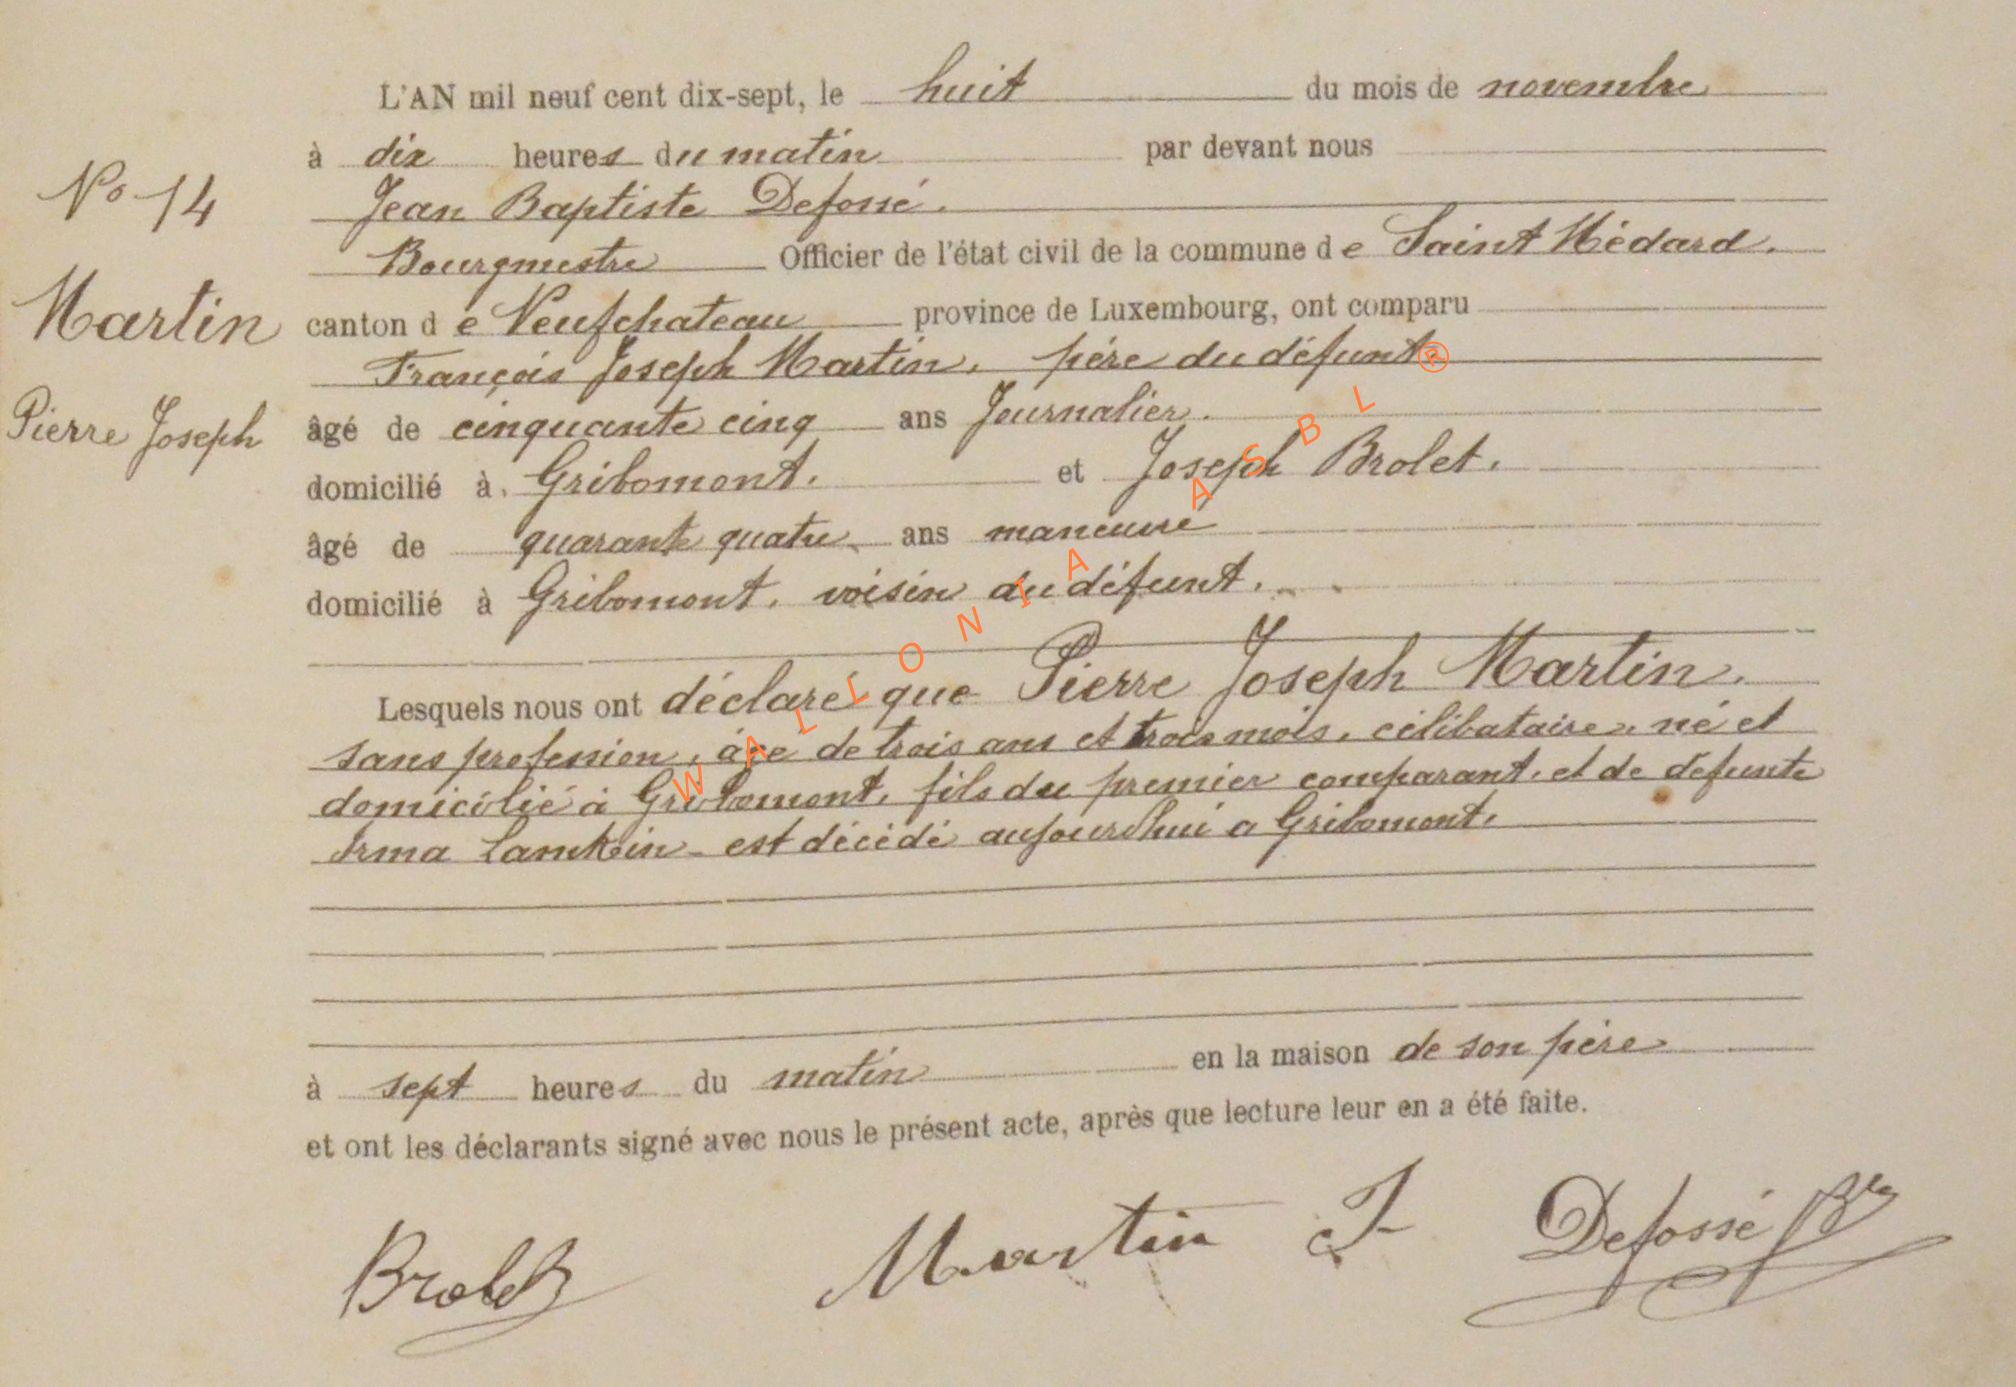 L'AN mil neuf cent dix-sept, le huit du mois de novembre
à dix heures du matin par devant nous
Nº 14
Jean Baptiste Defossé.
Bourgmestre Officier de l'état civil de la commune de Saint Médard.
Martin
canton de Neufchateau province de Luxembourg, ont comparu
François Joseph Martin, père du défunt
Pierre Joseph
âgé de cinquante cinq ans Journalier.
domicilié à Gribomont. et Joseph Brolet.
âgé de quarante quatre ans maneuvre
domicilié à Gribomont, voisin du défunt.
Lesquels nous ont déclaré que Pierre Joseph Martin.
sans profession, âge de trois ans et trois mois, célibataire, né et
domicilié à Gribomont, fils du premier comparant, et de defunte
Irma Lamkin est décédé aujourd'hui a Gribomont.
à sept heures du matin en la maison de son père
et ont les déclarants signé avec nous le présent acte, après que lecture leur en a été faite.
Brolet
Martin F
Defossé
WALLONIA ASBL ®